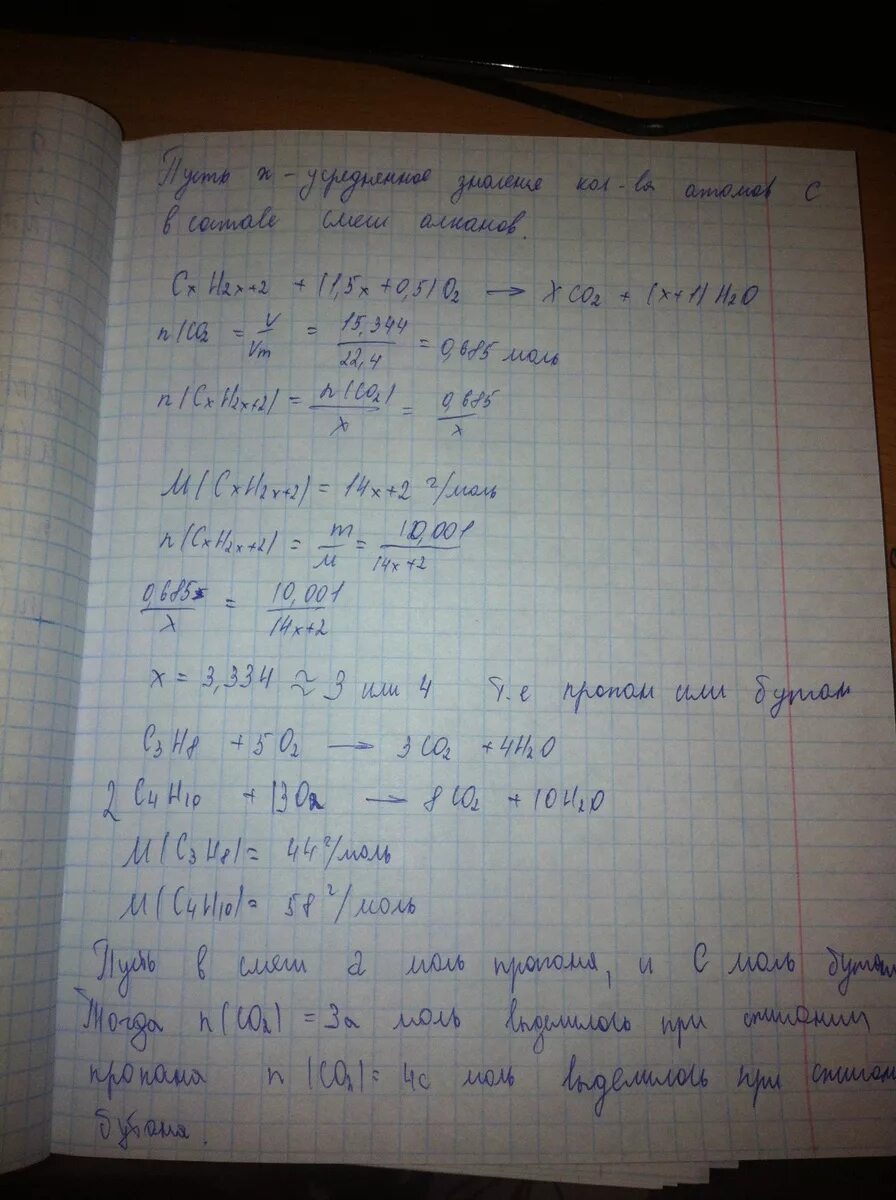 Пусть x - усредненное значение кол-ва атомов C
в составе смеси алканов.
CxH2x+2 + (1,5x+0,5)O2 → XCO2 + (x+1)H2O
n(CO2 = V/Vm = 15,344/22,4 = 0,685 моль
n(CxH2x+2) = n(CO2)/x = 0,685/x
M(CxH2x+2) = 14x+2 г/моль
n(CxH2x+2) = m/M = 10,001/14x+2
0,685/x = 10,001/14x+2
x = 3,334 ≈ 3 или 4 т.е пропан или бутан
C3H8 + 5O2 → 3CO2 + 4H2O
2C4H10 + 13O2 → 8CO2 + 10H2O
M(C3H8) = 44 г/моль
M(C4H10) = 58 г/моль
Пусть в смеси a моль пропана, и C моль бутан
Тогда n(CO2) = 3a моль выделилось при сжигании
пропана n(CO2) = 4c моль выделилось при сжиган
бутана.